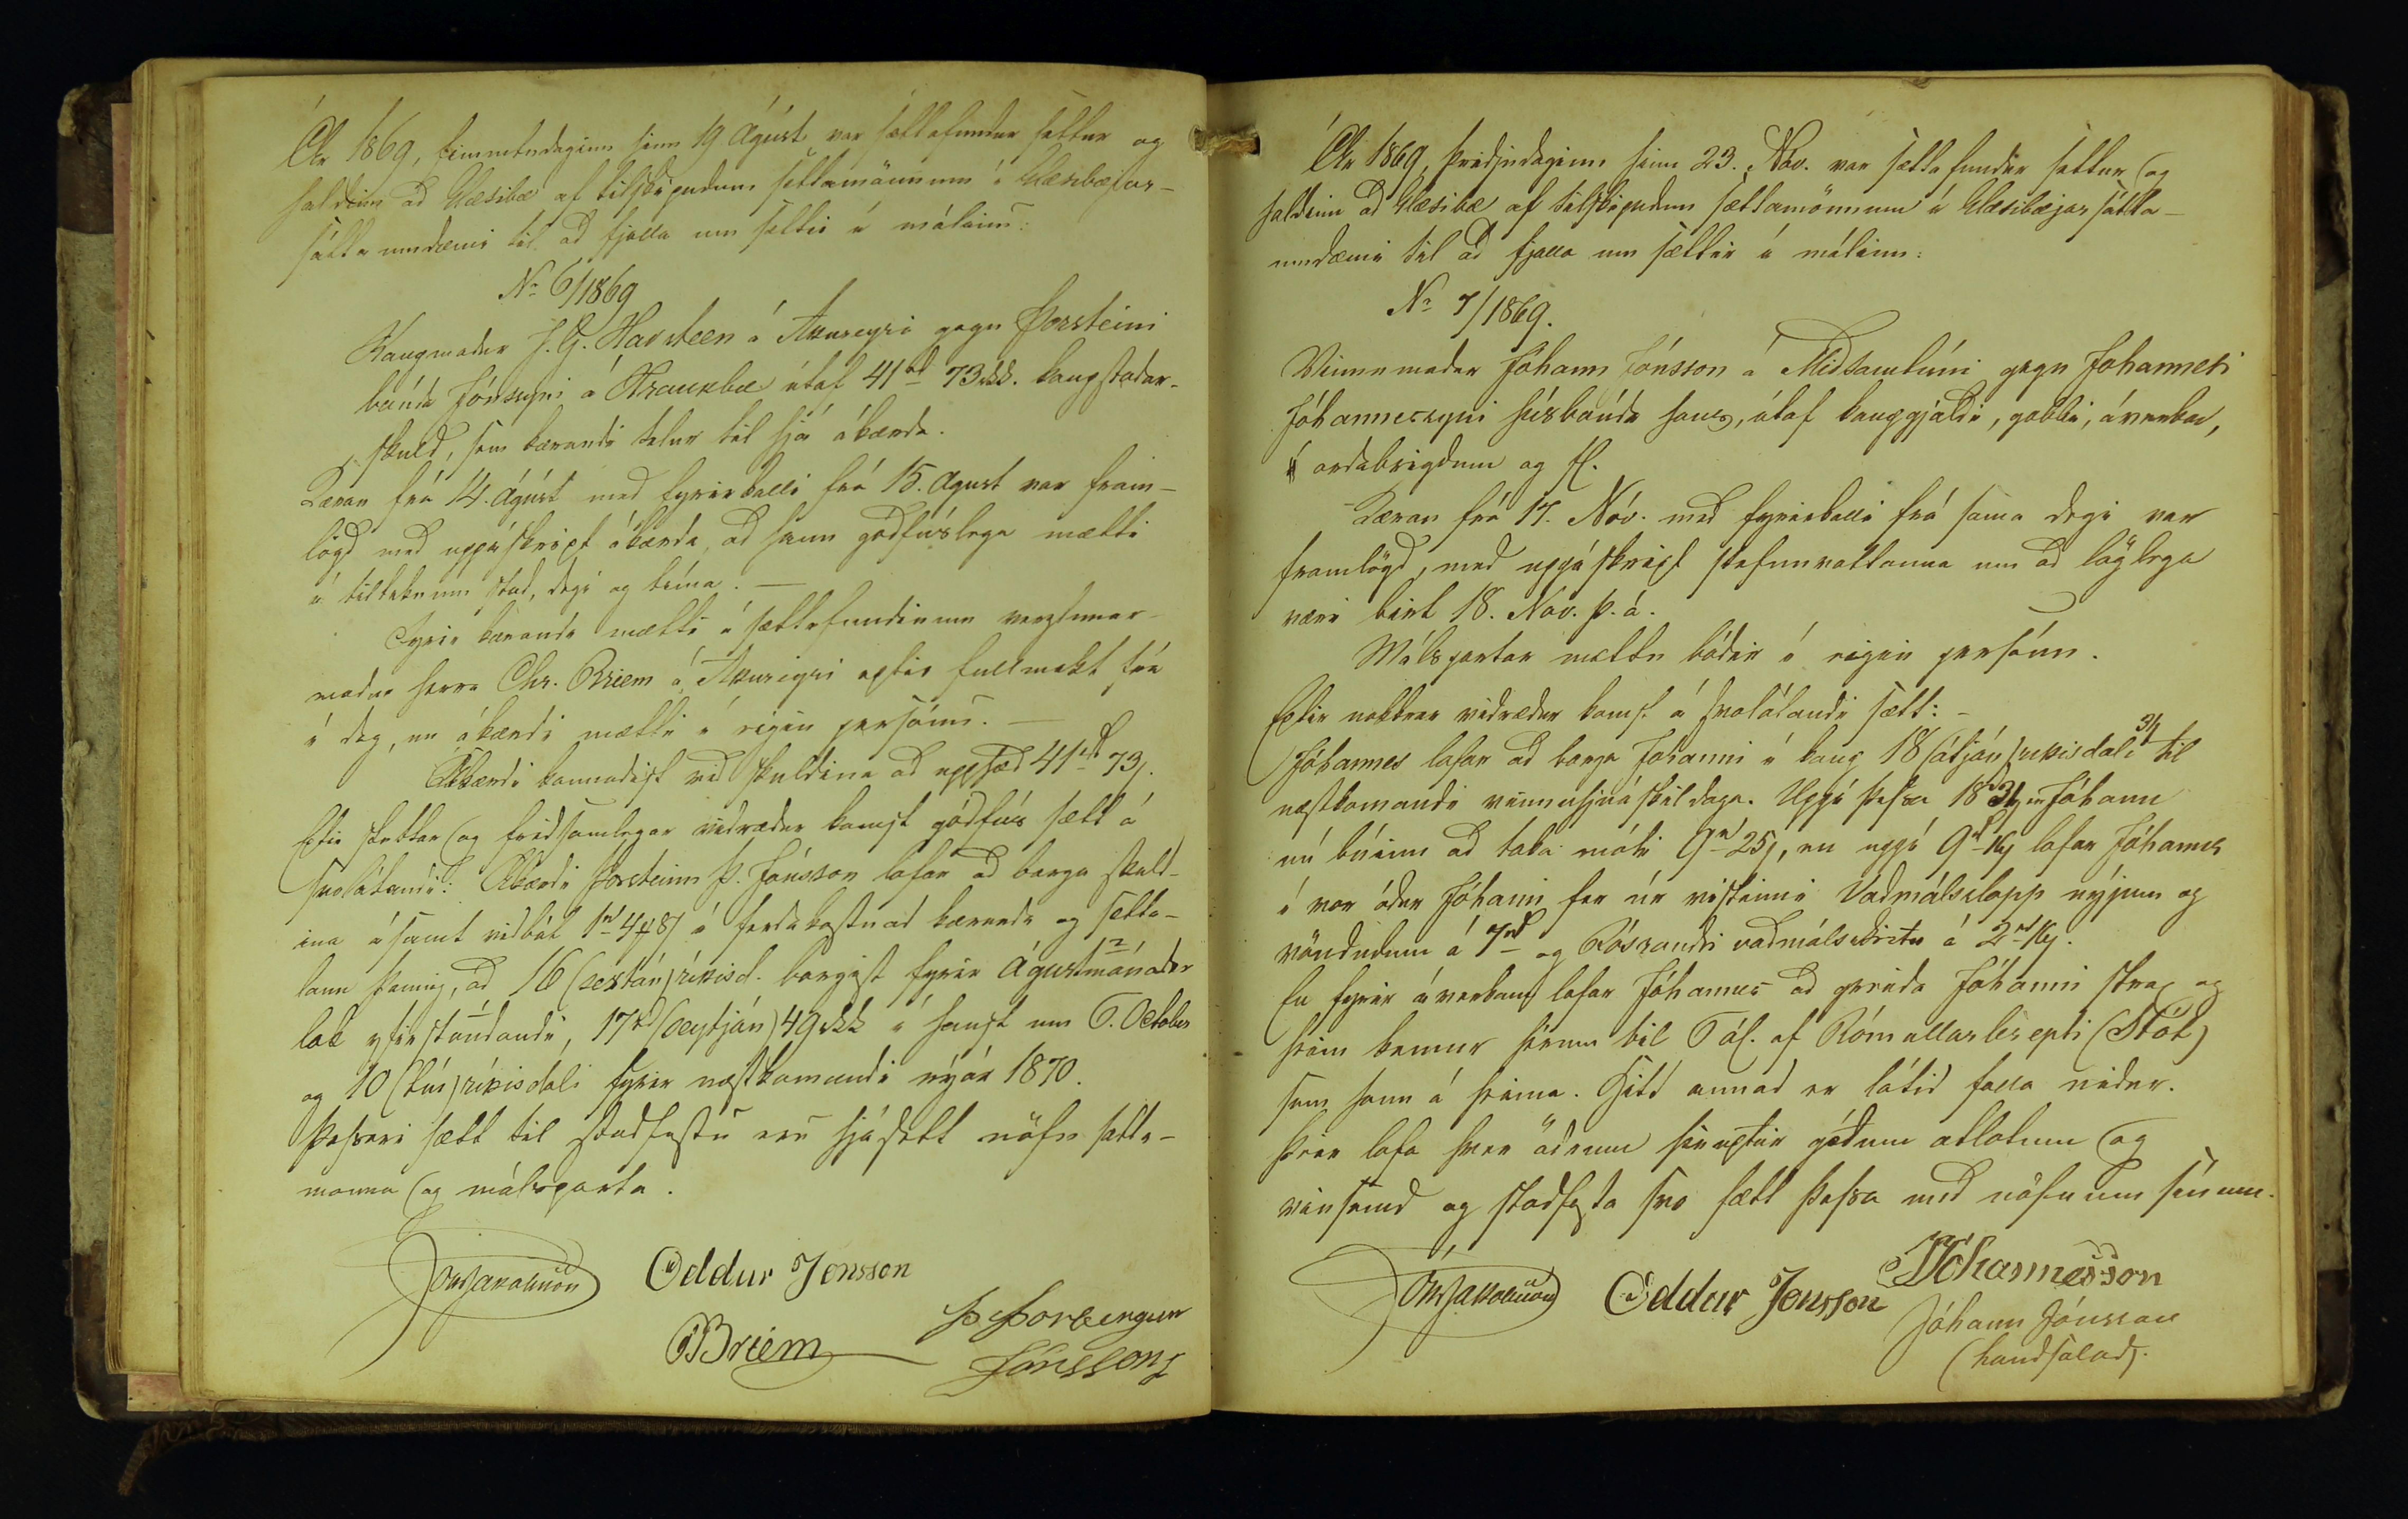 Ár 1869, fimmtudaginn hinn 19 Águst, var sættafundur settur og
haldinn ad Glæsibæ af tilskipudum sættamönnum í Glæsibæjar-
sátta umdæmi til ad fjalla um sættir í málinu:
No 6/1869
Kaupmadur J. G. Havsteen á Akureyri gegn Þorsteini
bónda Jónssyni á Kraunbæ útaf 41rd 73skk. kaupstadar-
skuld, sem kærandi telur til hjá ákærda.
Kæran frá 14. Ágúst med fyrirkalli frá 15. Águst var fram-
lögd med uppáskript ákærda, ad hann gódfúslega mætti
á tilteknum stad, degi og tíma. —
Fyrir kæranda mætti á sættafundinum verzlunar-
madur herra Chr. Briem á Akureyri eptir fullmakt frá
í dag, en ákærdi mætti í eigin persónu. —
Ákærdi kannadist vid skuldina ad upphæd 41rd 73s.
Eptir stuttar og fridsamlegar vidrædur komst gódfús sætt á
svolátandi: Ákærdi Þorsteinn Þ. Jónsson lofar ad borga skuld-
ina ásamt vidbót 1rd 48s í ferdakostnad kæranda og sátta-
laun þannig, ad 16 (sextán) ríkisd. borgist fyrir Ágústmánadar
lok yfirstandandi, 17rd (seytján) 49skk í haust um 6. October
og 10 (tíu) ríkisdali fyrir næstkomandi nýár 1870.
Þessari sætt til stadfestu eru hjásett nöfn sátta-
manna og málsparta.
Oddur Jonsson
Briem
Þ Þorbergur
Jónsson
Ár 1869, þridjudaginn hinn 23. Nóv. var sættafundur settur og
haldinn ad Glæsibæ af tilskipudum sættamönnum í Glæsibæjar sátta-
umdæmi til ad fjalla um sættir í málinu:
No 7/1869.
Vinnumadur Jóhann Jónsson á Midsamtúni gegn Jóhannesi
Jóhannessyni húsbónda hans, útaf kaupgjaldi, gabbi, áverka,
ordabrigdum og fl.
Kæran frá 17. Nóv. med fyrirkalli frá sama degi var
framlögd, med uppáskript stefnuvottanna um ad löglega
væri birt 18. Nov. þ. á.
Málspartar mættu bádir í eigin persónu.
Eptir nokkrar vidrædur komst á svolátandi sætt: -
Jóhannes lofar ad borga Jóhanni í kaup 18 (átján) ríkisdali 3/ til
næstkomandi vinnuhjúaskildaga. Uppí þessa 18rd 3/ er Jóhann
nú búinn ad taka móti 9rd 25s, en uppí 9rd lofar Jóhannes
í vor ádur Jóhann fer úr vistinni Vadmálsslopp nýjum og
vöndudum á 7rd og Rósrandri vadmálsskirtu á 2rd.
En fyrir áverkann lofar Jóhannes ad greida Jóhanni strax og
heim kemur heenn til 6 ál. af Rómullarlérepti (Stót)
sem hann á heima. Hitt annad er látid falla nidur.
Þeir lofa hver ödrum hérеptir gódum atlotum og
vinsemd og stadfesta svo sætt þessa med nöfnum sínum.
Oddur Jonsson
JJóhannesson
Jóhann Jónsson
(handsalad).